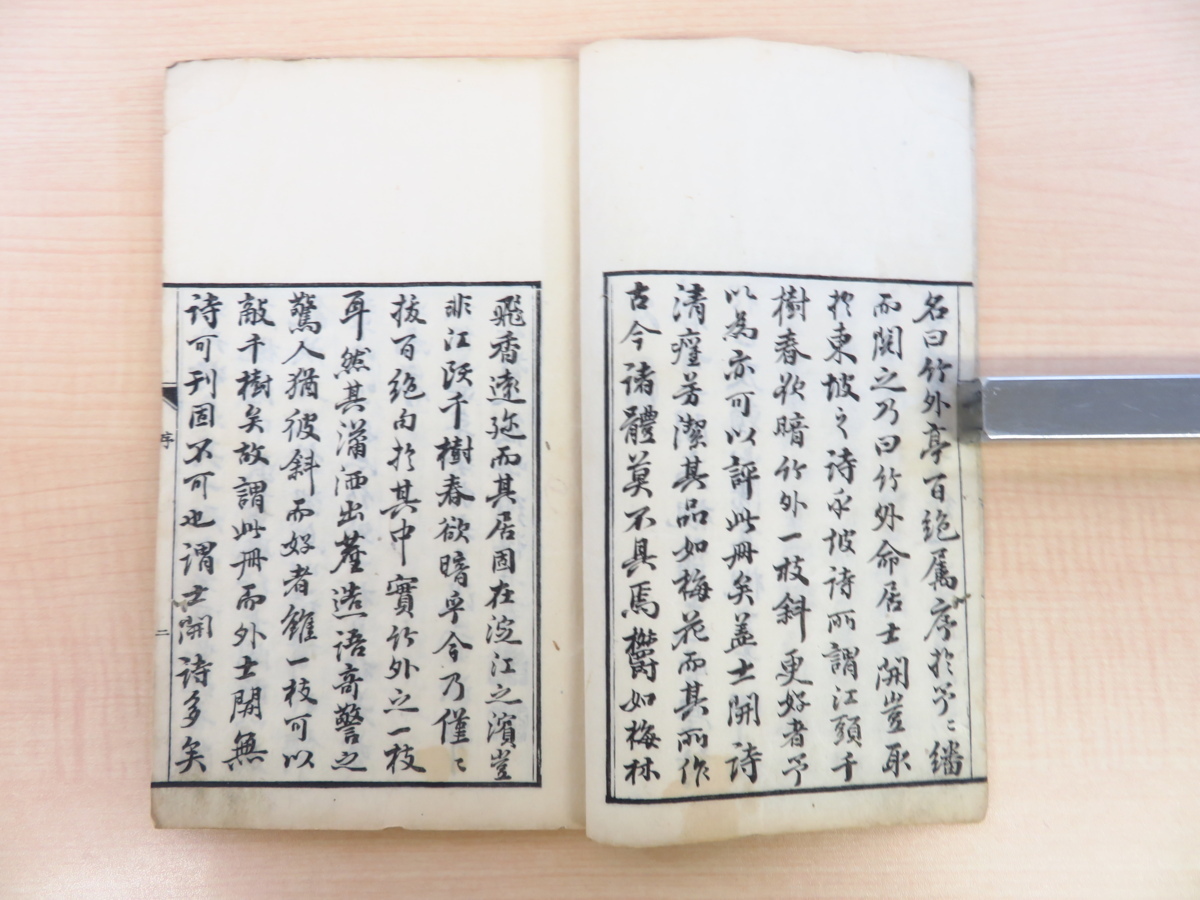 名曰竹外亭百絶属序於予〻繙
而閲之乃曰竹外命居士開豈取
於東坡之詩乎坡詩所謂江頭千
樹春欲暗竹外一枝斜更好者予
以為亦可以評此冊矣蓋士開詩
清癯芳潔其品如梅花而其所作
古今諸體莫不具焉欝如梅林
飛香遠迩而其居固在淀江之濱豈
非江頭千樹春欲暗乎今乃僅〻
抜百絶句於其中實竹外之一枝
耳然其瀟洒出塵造語奇警之
驚人猶彼斜而好者雖一枝可以
敵千樹矣故謂此冊而外士開無
詩可刊固不可也謂士開詩多矣
序
二